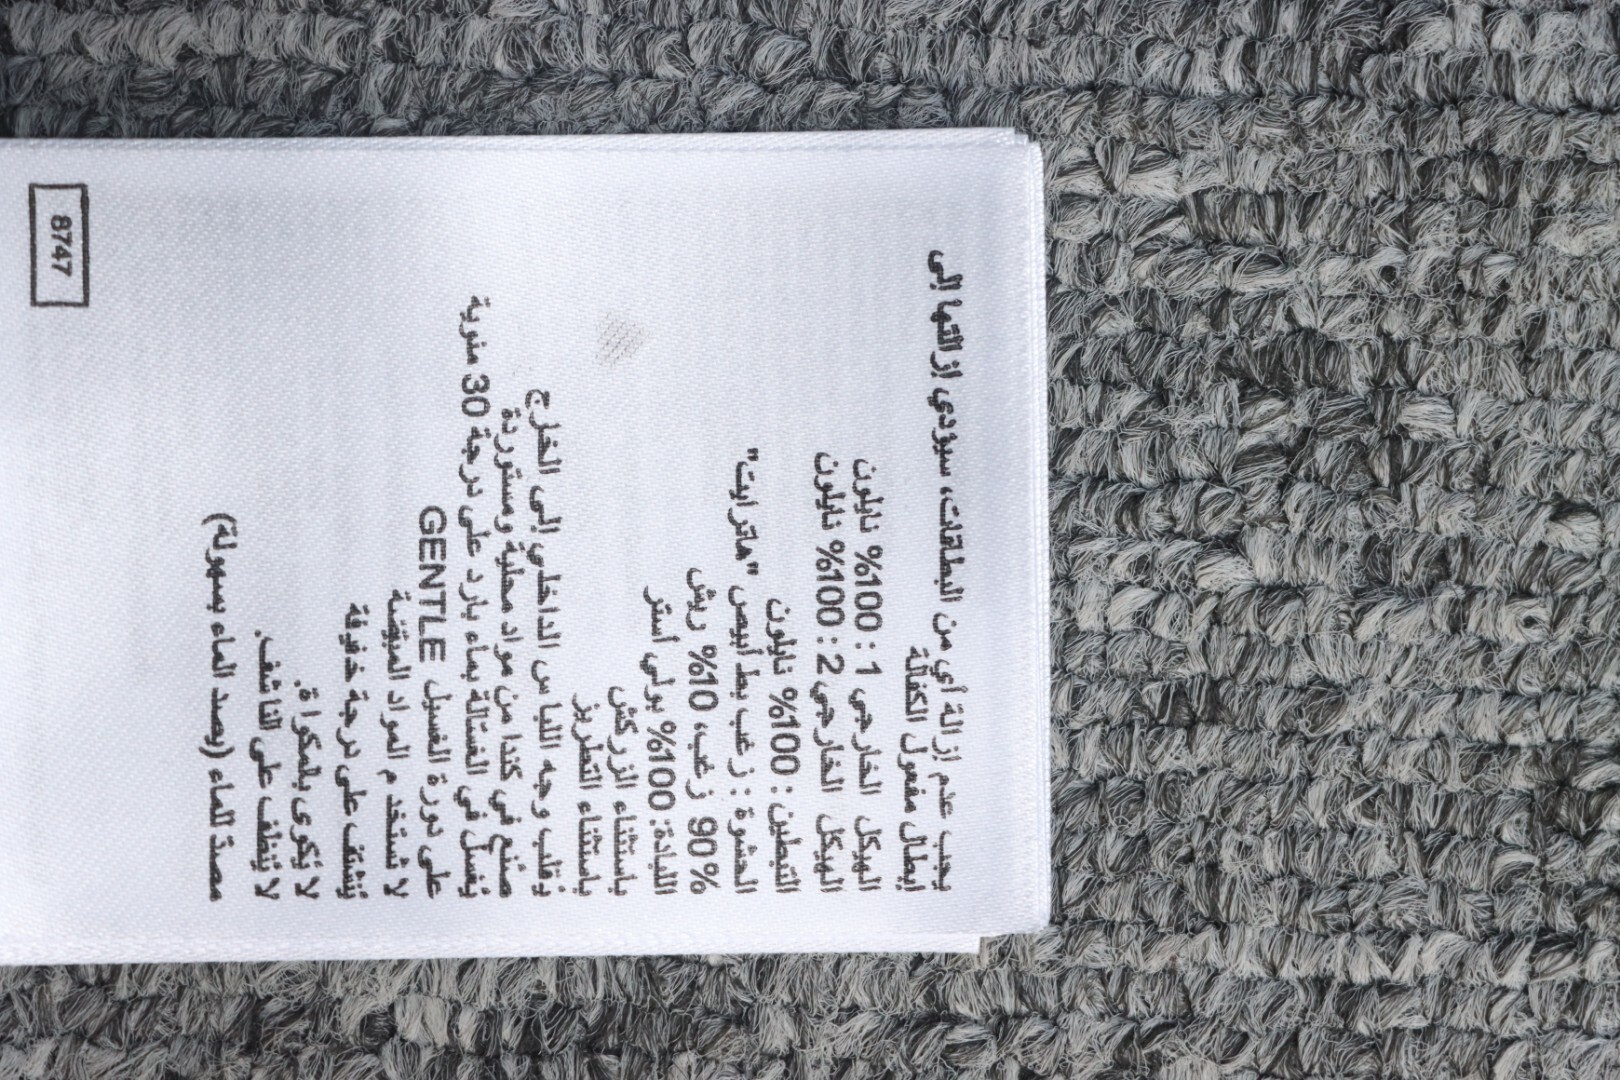 يجب عدم إزالة أي من البطاقات، سيؤدي إزالتها إلى
إبطال مفعول الكفالة
الهيكل الخارجي 1 : 100% نايلون
الهيكل الخارجي 2 : 100% نايلون
التبطين : 100% نايلون
الحشوة : زغب بط أبيض "هاترايت"
90% زغب، 10% ريش
اللبادة: 100% بولي أستر
باستثناء الزركش
باستثناء التطريز
يُقلب وجه اللباس الداخلي إلى الخارج
صُنع في كندا من مواد محلية ومستوردة
يُغسل في الغسالة بماء بارد على درجة 30 مئوية
على دورة الغسيل GENTLE
لا تُستخدم المواد المبيّضة
يُنشّف على درجة خفيفة
لا يُكوى بالمكواة.
لا يُنظف على الناشف.
مصدّ للماء (يصد الماء بسهولة)
8747